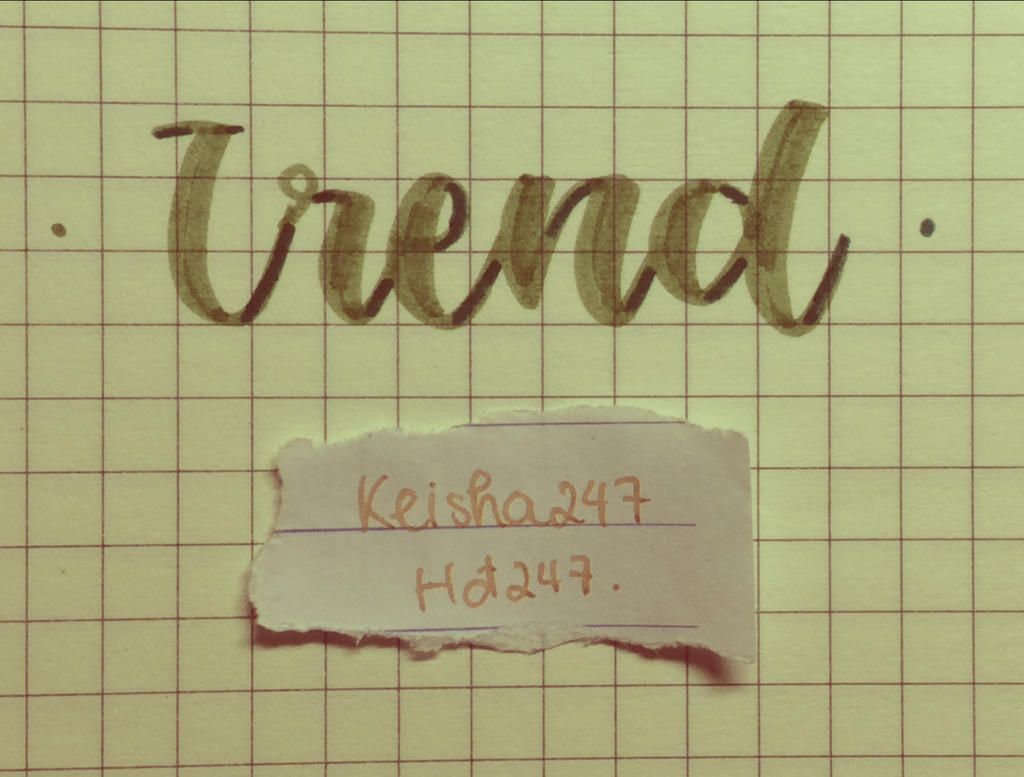 trend
Keisha247
Hot247.